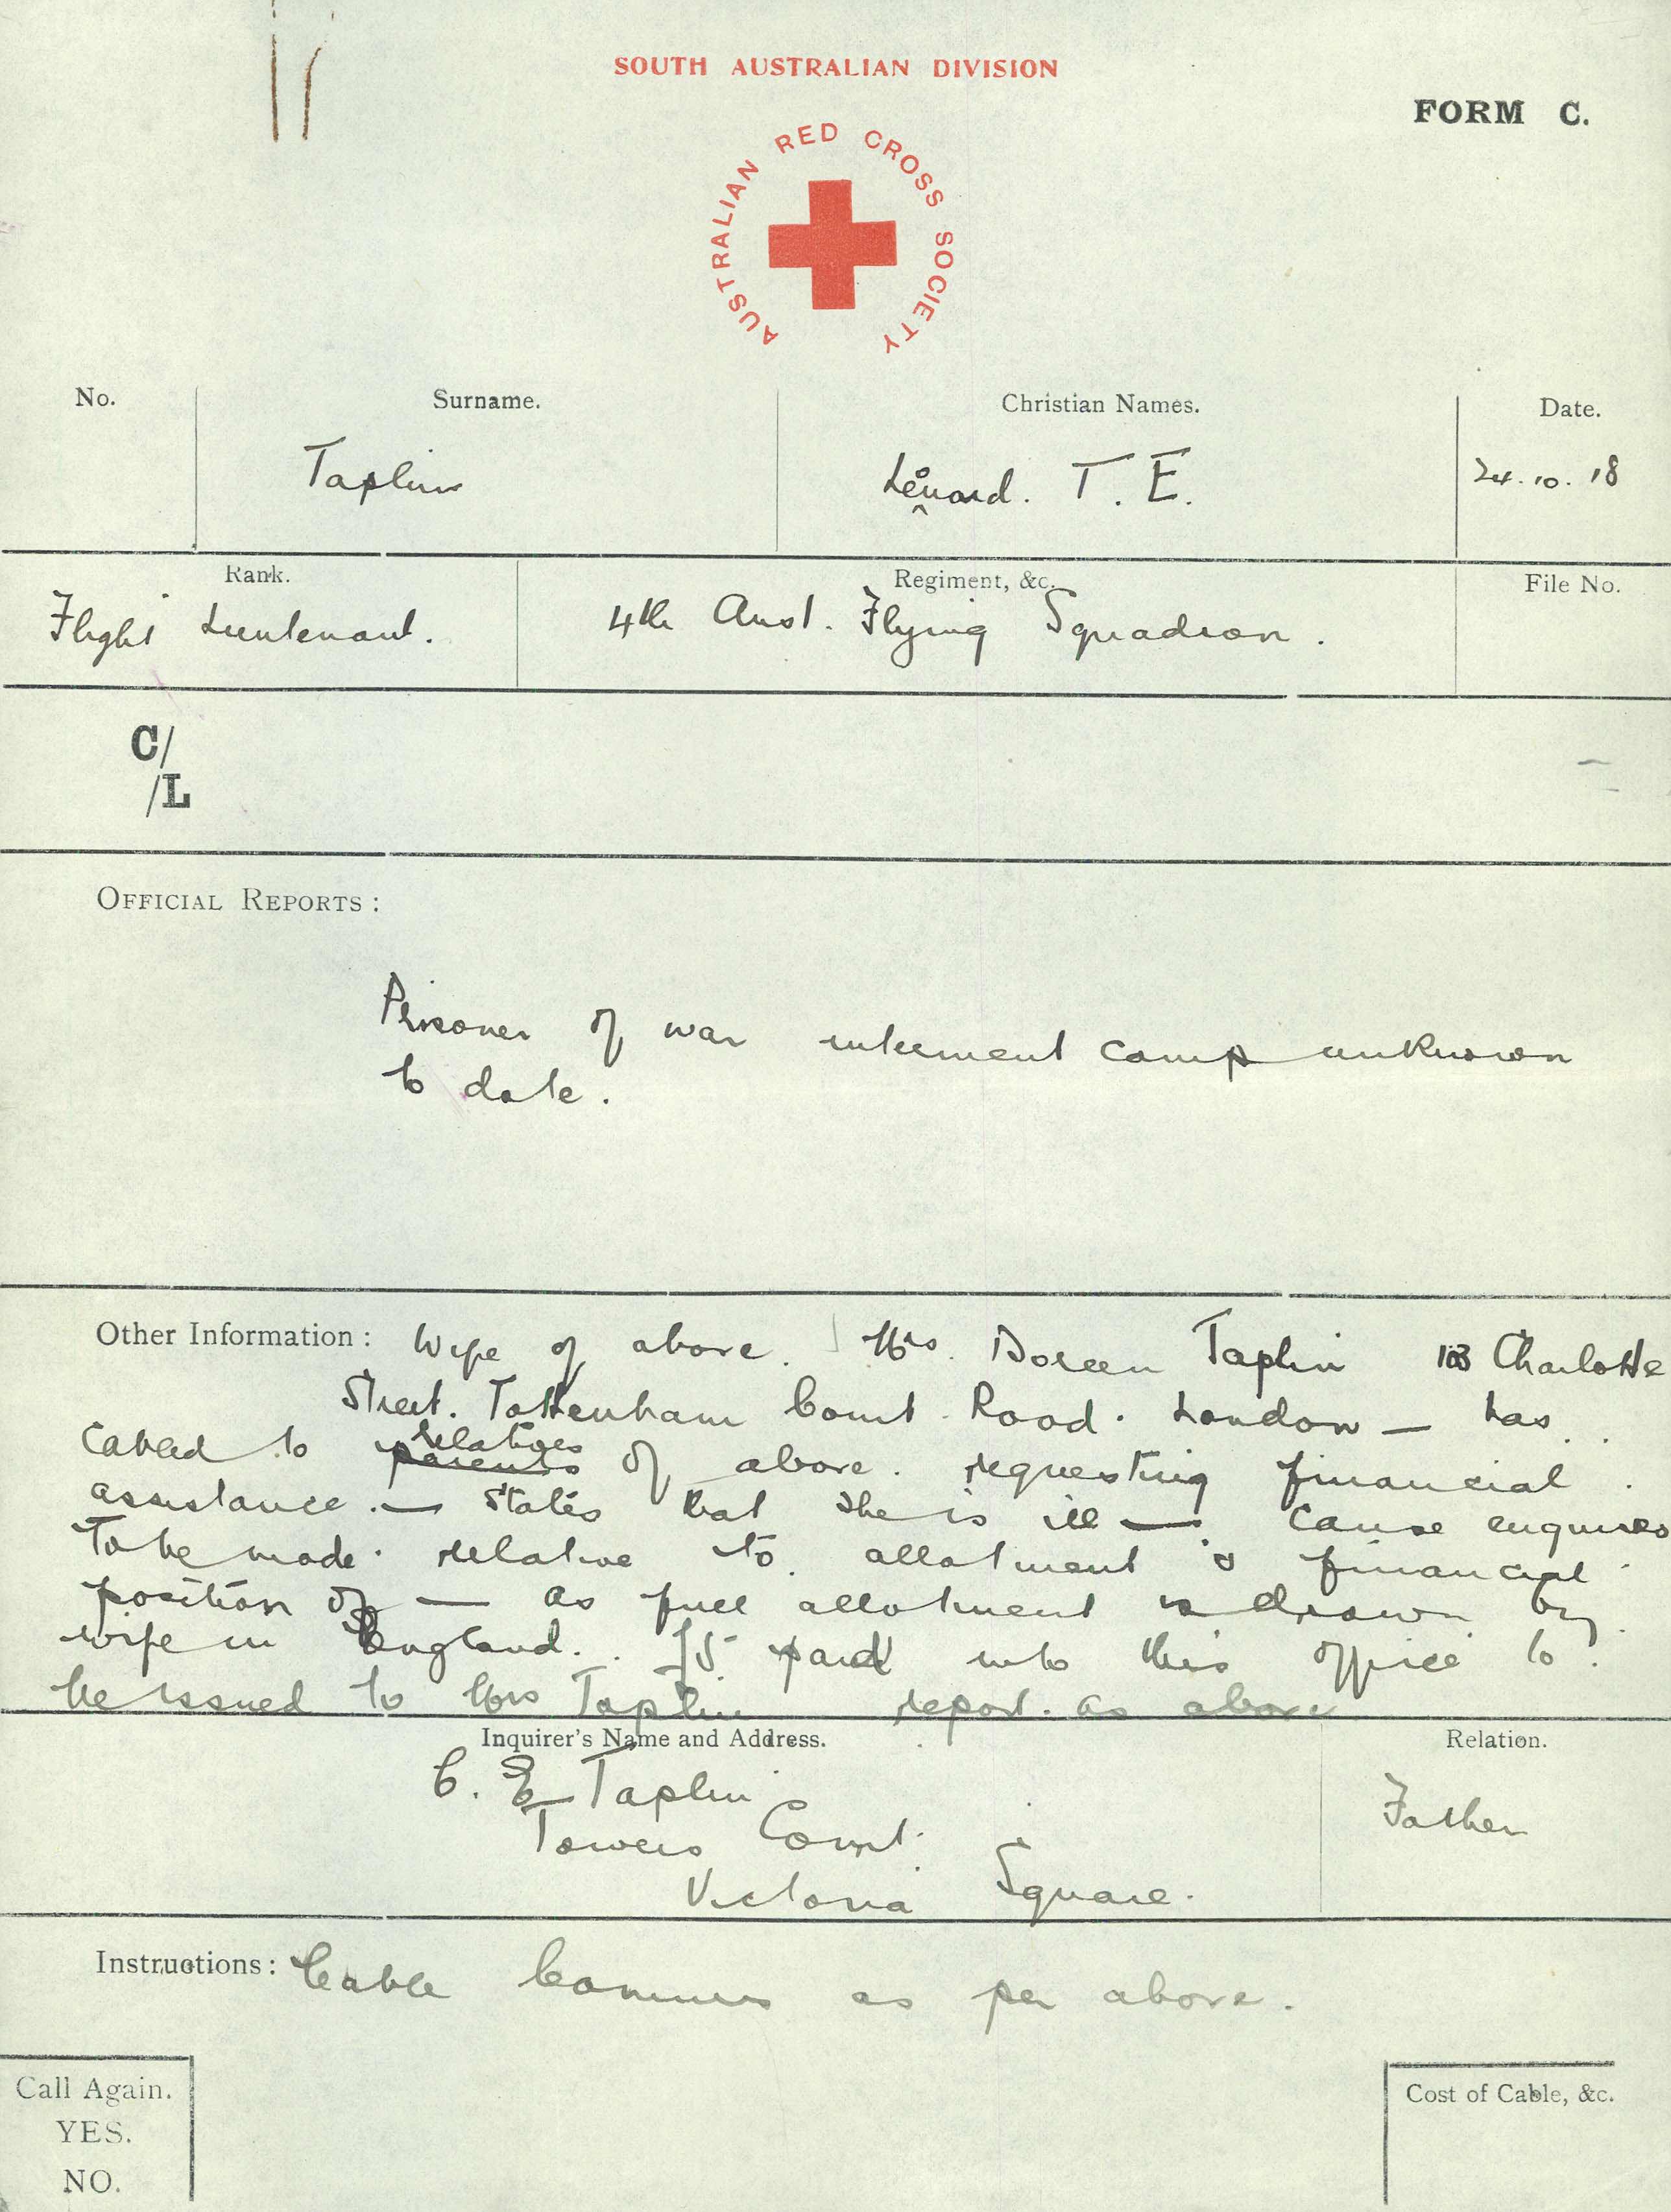 SOUTH AUSTRALIAN DIVISION
FORM C.
AUSTRALIAN RED CROSS SOCIETY
No. Surname. Christian Names. Date.
Taplin Leonard. T. E. 24.10.18
Rank. Regiment, &c. File No.
Flight Lieutenant. 4th Aust. Flying Squadron.
C/
/L
OFFICIAL REPORTS:
Prisoner of war interment camp unknown
to date.
Other Information: Wife of above. Mrs. Doreen Taplin 103 Charlotte
Street. Tottenham Court. Road. London — has
relatives
cabled to parents of above. requesting financial.
assistance. — States that she is ill — Cause enquires
to be made relative to allotment & financial
position of — as full allotment is drawn by
wife in England. £5 paid into this office to
be issued to Mrs Taplin report. as above
Inquirer's Name and Address. Relation.
C. E Taplin
Towers Court. Father
Victoria Square.
Instructions: Cable Commis as per above.
Call Again. Cost of Cable, &c.
YES.
NO.